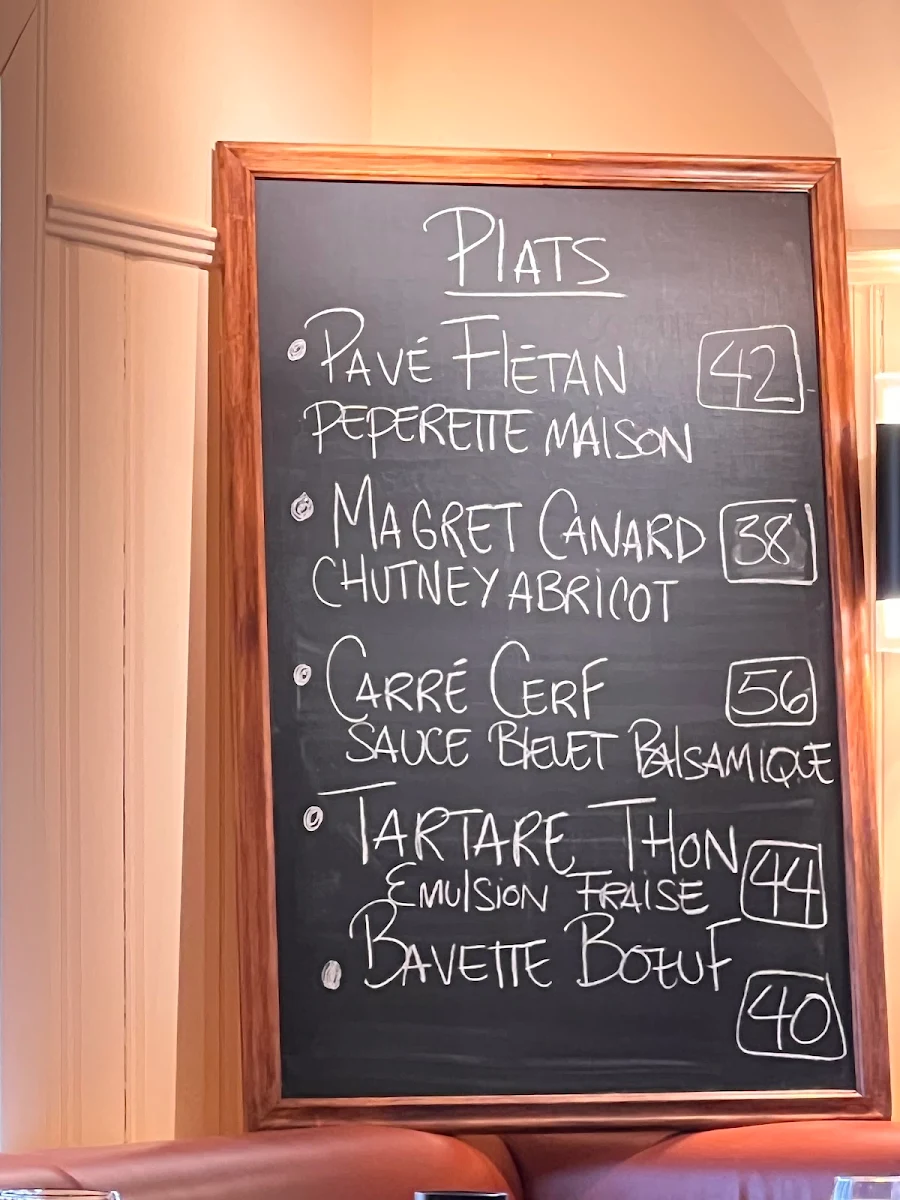 PlATS
PAVÉ FlÉTAN
42
PEPERETTE MAISON
MAGRET CANARD
38
CHUTNEY ABRICOT
CARRÉ CERF
56
SAUCE BlEUET BAlSAMIQUE
TARTARE THON
44
EMUlSION FRAISE
BAVETTE BOEUF
40